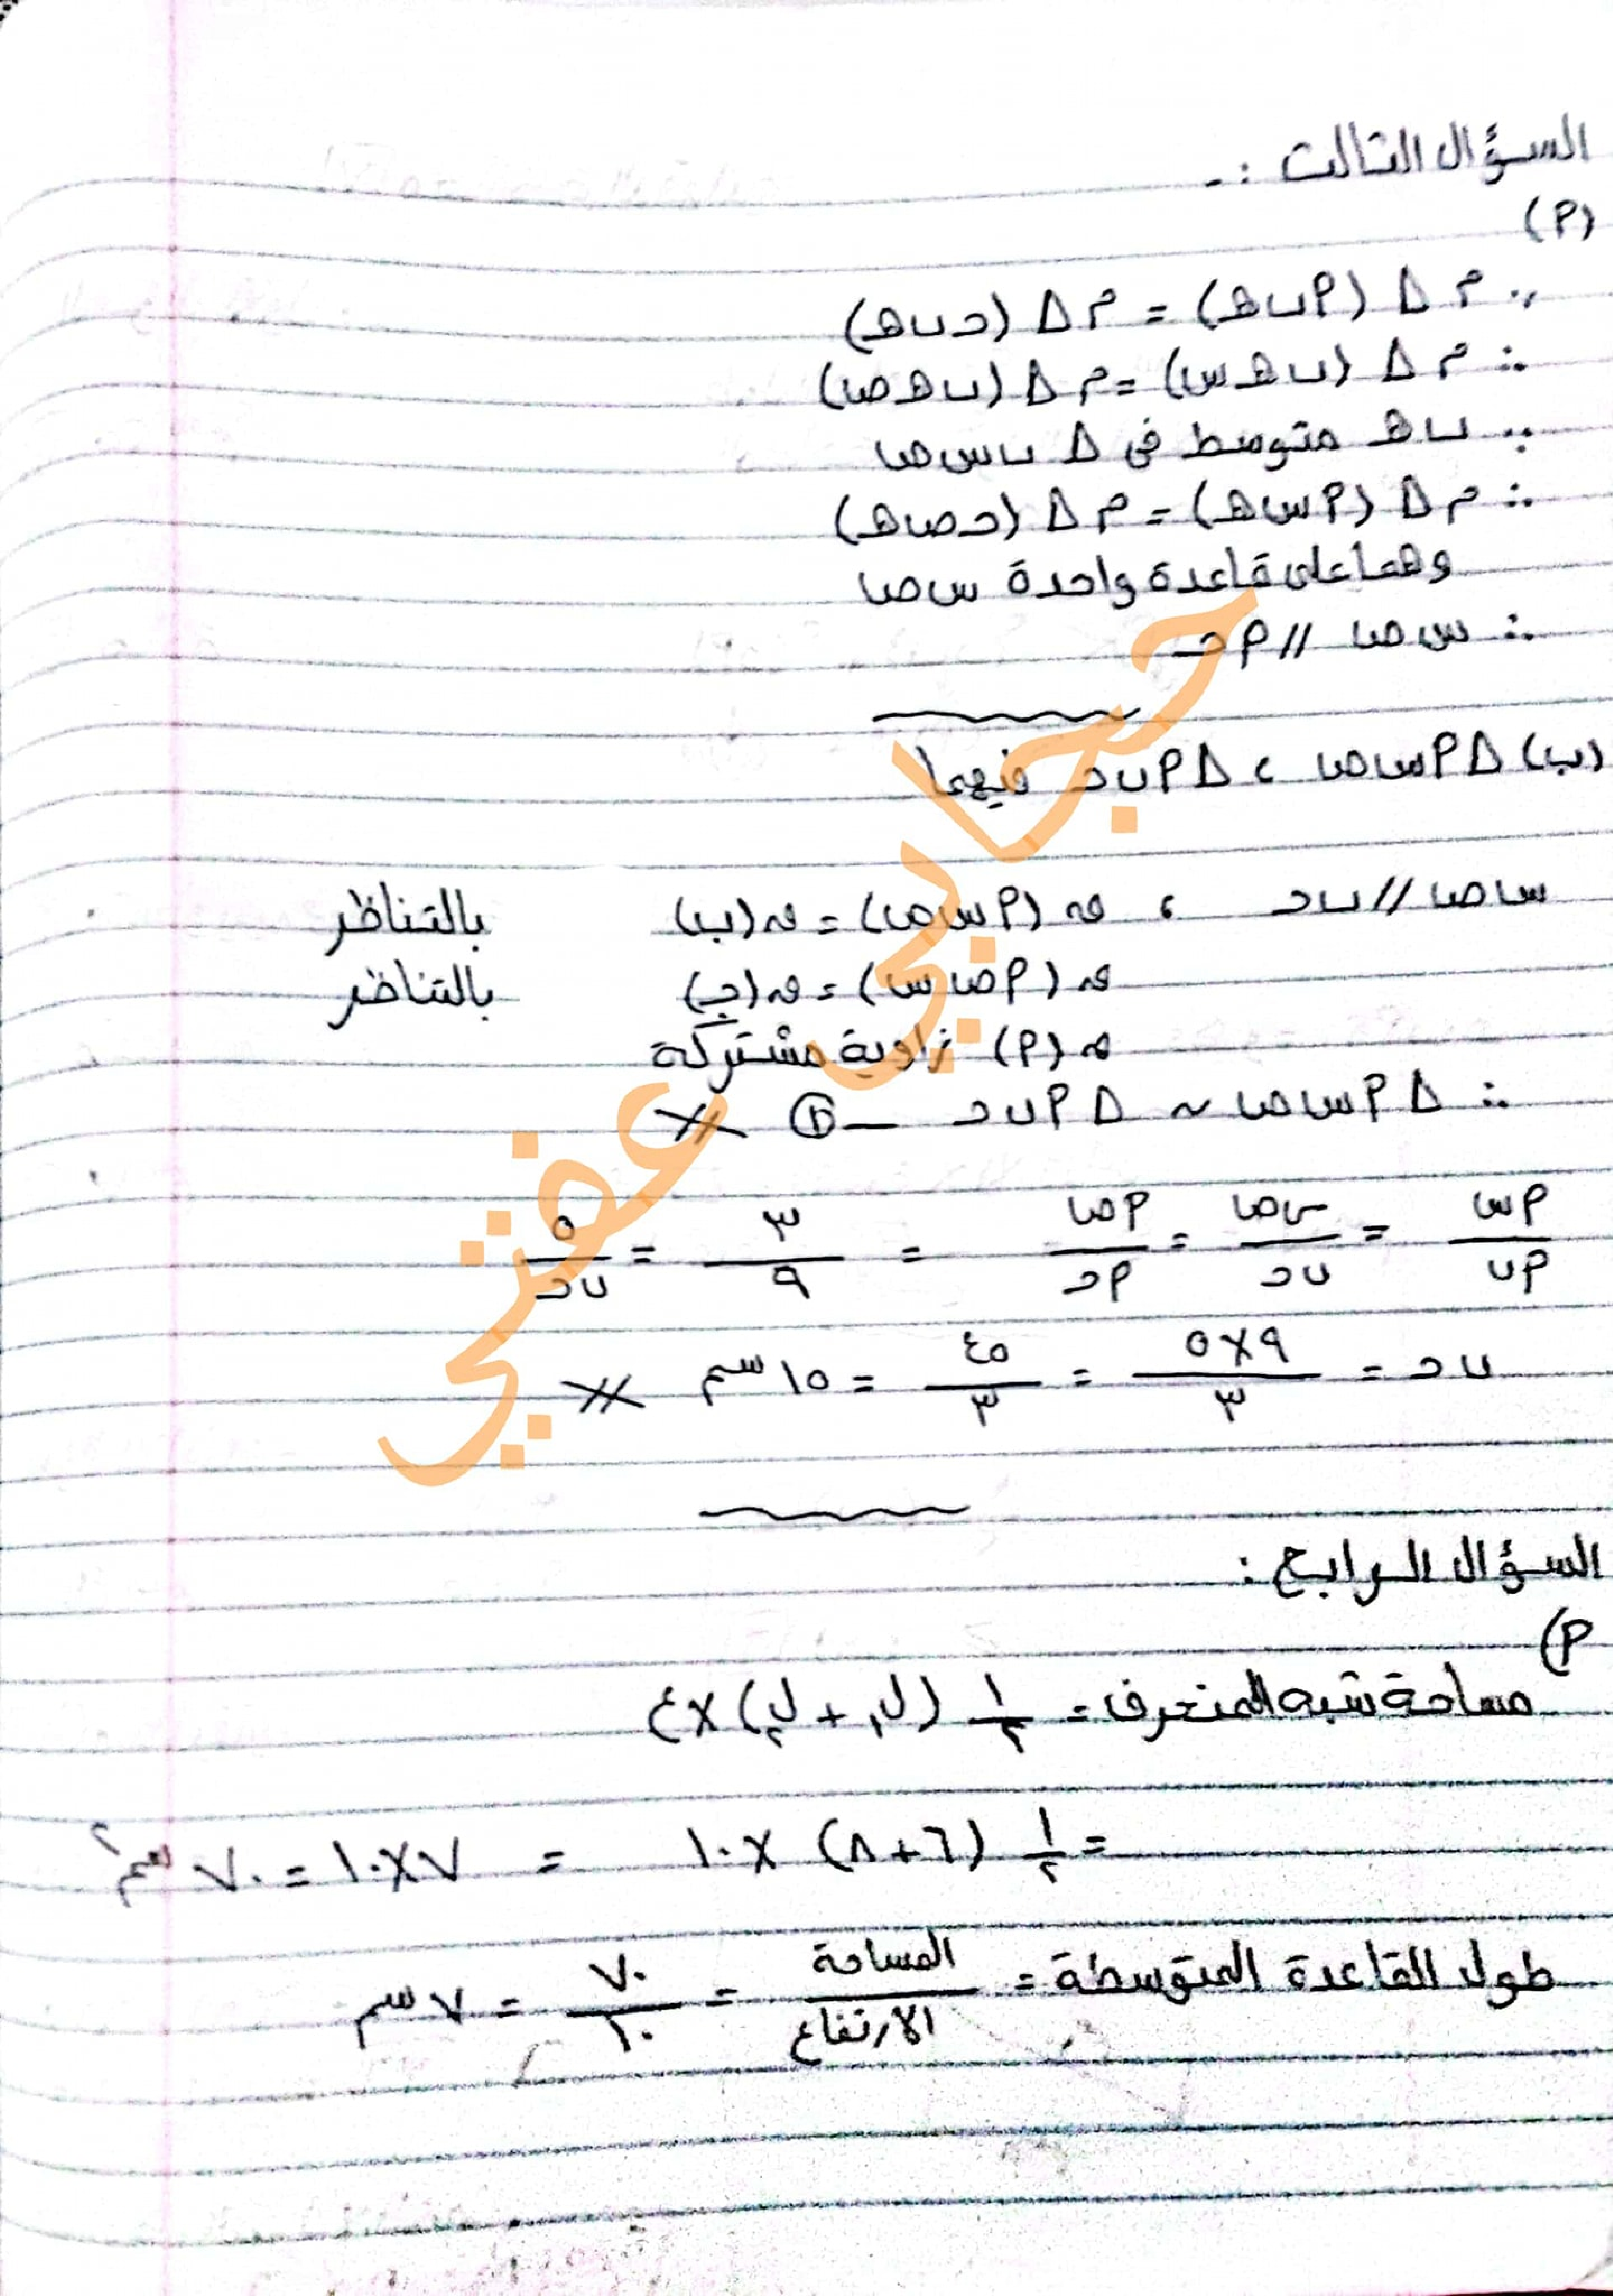 السؤال الثالث :-
(P)
∵ م Δ (P ب هـ) = م Δ (حـ ب هـ)
∴ م Δ (ب هـ س) = م Δ (ب هـ ص)
∵ ب هـ متوسط فى Δ ب س ص
∴ م Δ (P س هـ) = م Δ (حـ ص هـ)
وهما على قاعدة واحدة س ص
∴ س ص // P حـ
(ب) Δ P س ص ، Δ P ب حـ فيهما
س ص // ب حـ ، ق (P س ص) = ق (ب) بالتناظر
ق (P ص س) = ق (جـ) بالتناظر
ق (P) زاوية مشتركة
∴ Δ P س ص ~ Δ P ب حـ — ①
P س / P ب = س ص / ب حـ = P ص / P حـ = ٣ / ٩ = ٥ / ب حـ
ب حـ = ٩ × ٥ / ٣ = ٤٥ / ٣ = ١٥ سم
السؤال الرابع :
P)
مساحة شبه المنحرف = ١/٢ (ل١ + ل٢) × ع
= ١/٢ (٦ + ٨) × ١٠ = ٧ × ١٠ = ٧٠ سم٢
طول القاعدة المتوسطة = المساحة / الارتفاع = ٧٠ / ١٠ = ٧ سم
حجابي عفتي